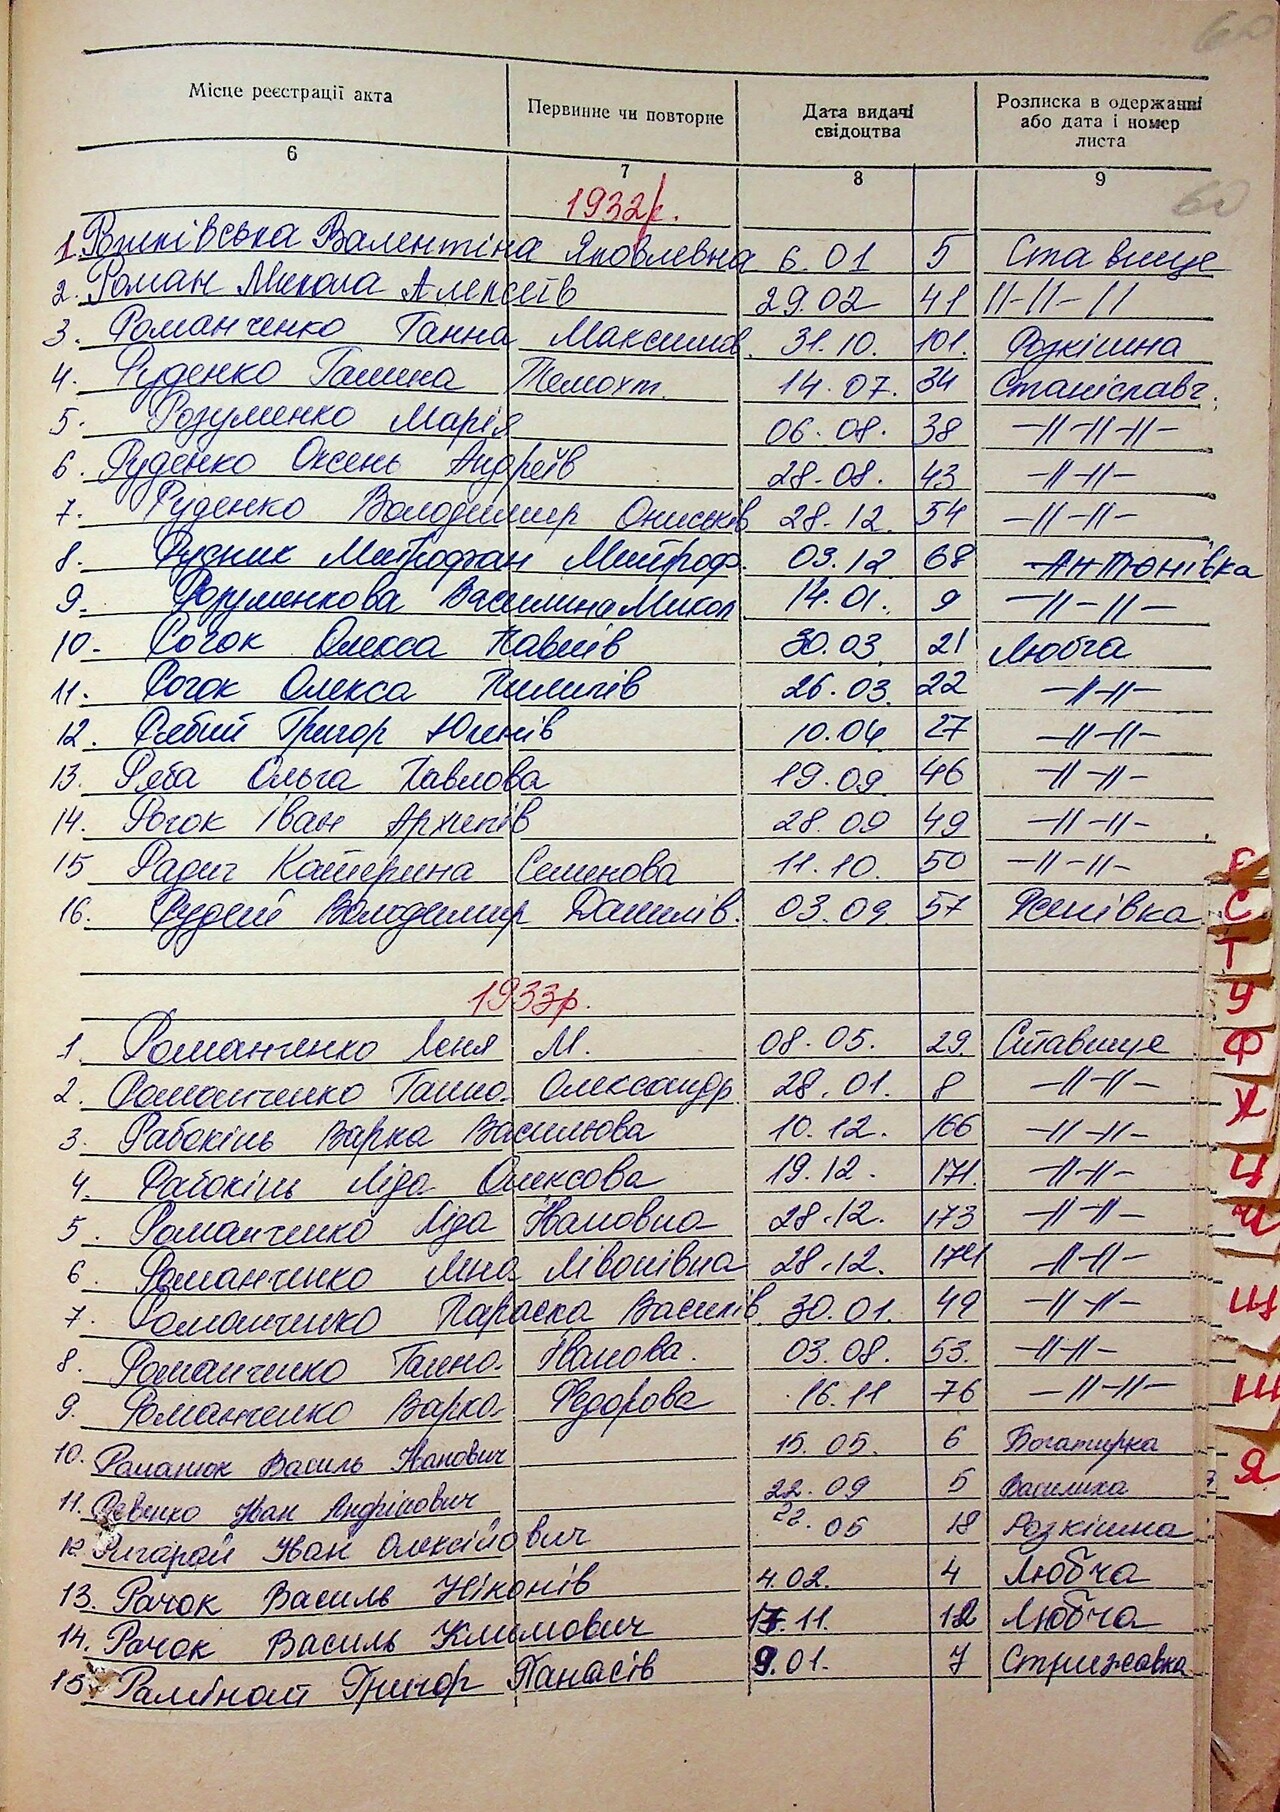 60
Місце реєстрації акта Первинне чи повторне Дата видачі свідоцтва Розписка в одержанні або дата і номер листа
6 7 8 9
60
1932р.
1. Валентіна Яковлевна 6.01 5 Ставище
2. Роман Микола Алексеїв 29.02 41 //-//-//
3. Романченко Ганна Максимов. 31.10. 101. Розкішна
4. Руденко Галина Темохт. 14.07. 34 Станіславч.
5. Розуменко Марія 06.08. 38 -//-//-//-
6. Руденко Оксень Андреїв 28.08. 43 -//-//-
7. Руденко Володимир Ониськів 28.12. 54 -//-//-
8. Русник Митрофан Митроф. 03.12 68 -Антонівка
9. Розуменкова Василина Микол 14.01. 9 -//-//-
10. Рогок Олекса Павлів 30.03. 21 Любча
11. Рогок Олекса Пилипів 26.03. 22 -//-//-
12. Рябий Григор 10.04 27 -//-//-
13. Ряба Ольга Павлова 19.09. 46 -//-//-
14. Рогок Іван Архипів 28.09 49 -//-//-
15 Радич Катерина Семенова 11.10. 50 -//-//-
16. Рудей Володимир Данилів. 03.09. 57 Ясенівка
1933р.
1. Романченко Леня М. 08.05. 29. Ставище
2. Романченко Ганна Олександр. 28.01. 8 -//-//-
3. Рабокінь Варка Василюва 10.12. 166 -//-//-
4. Рабокінь Ліда Олексова 19.12. 171. -//-//-
5. Романченко Ліда Івановна 28.12. 173 -//-//-
6. Романченко Ліна 28.12. 174 -//-//-
7. Романченко Параска Василів. 30.01. 49 -//-//-
8. Романченко Ганна Іванова. 03.08. 53. -//-//-
9. Романченко Варка Федорова 16.11 76 -//-//-
10. Романюк Василь Іванович 15.05. 6 Богатирка
11. Ревенко Іван Андрійович 22.09 5 Василиха
12. Іван Олексійович 22.05 18 Розкішна
13. Рачок Василь Ніконів 4.02. 4 Любча
14. Рачок Василь Климович 17.11. 12 Любча
15. Григор Панасів 9.01. 7 Стрижавка
Р
С
Т
У
Ф
Х
Ц
Ч
Ш
Щ
Я